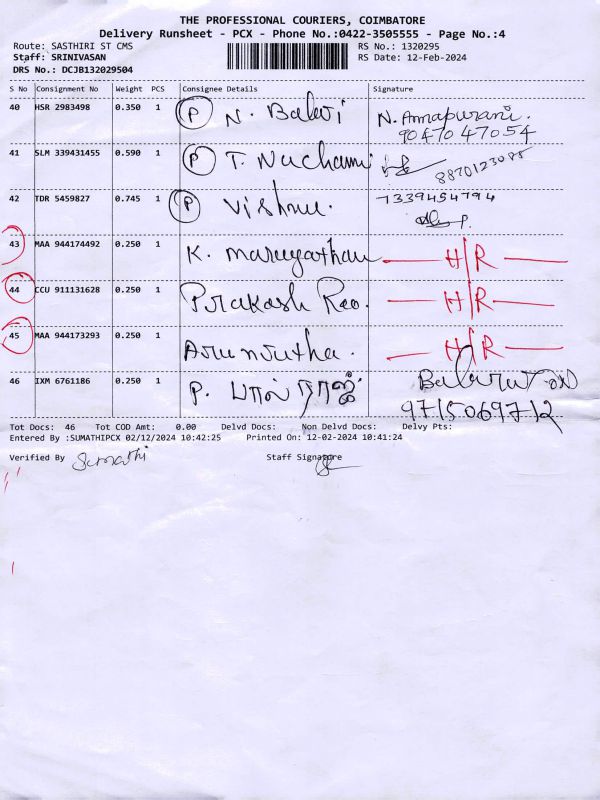 THE PROFESSIONAL COURIERS, COIMBATORE
Delivery Runsheet - PCX - Phone No.:0422-3505555 - Page No.:4
Route: SASTHIRI ST CMS RS No.: 1320295
Staff: SRINIVASAN RS Date: 12-Feb-2024
DRS No.: DCJB132029504
S No Consignment No Weight PCS Consignee Details Signature
40 HSR 2983498 0.350 1 P N. Balaji N. Annapurani.
9047047054
41 SLM 339431455 0.590 1 P T. 8870123085
42 TDR 5459827 0.745 1 P Vishnu. 7339454794
43 MAA 944174492 0.250 1 K. H/R
44 CCU 911131628 0.250 1 Prakash Rao. H/R
45 MAA 944173293 0.250 1 H/R
46 IXM 6761186 0.250 1 P. பால்ராஜ்
9715069712
Tot Docs: 46 Tot COD Amt: 0.00 Delvd Docs: Non Delvd Docs: Delvy Pts:
Entered By :SUMATHIPCX 02/12/2024 10:42:25 Printed On: 12-02-2024 10:41:24
Verified By Sumathi Staff Signature